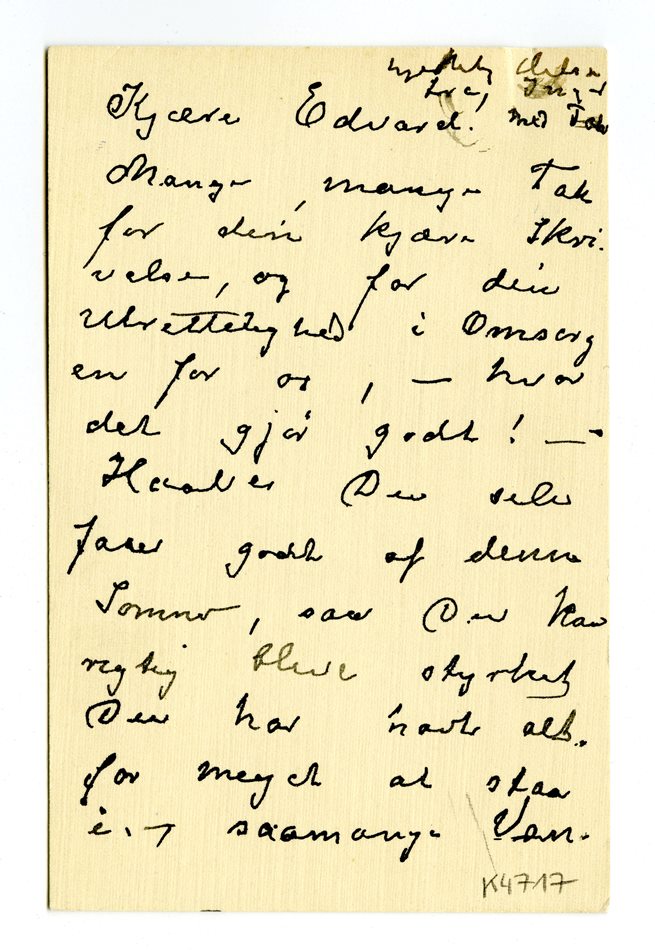 hjertelig hilsen
fra, Inger
med Tak
Kjære Edvard!
Mange, mange Tak
for din kjære Skri-
velse, og for din
Utrettelighed i Omsorg
en for os, — hvor
det gjør godt! —
Haaber Du selv
faar godt af denne
Sommer, saa Du kan
rigtig blive styrket
Du har havt alt-
for meget at staa
i. — saamange Van-
K4717